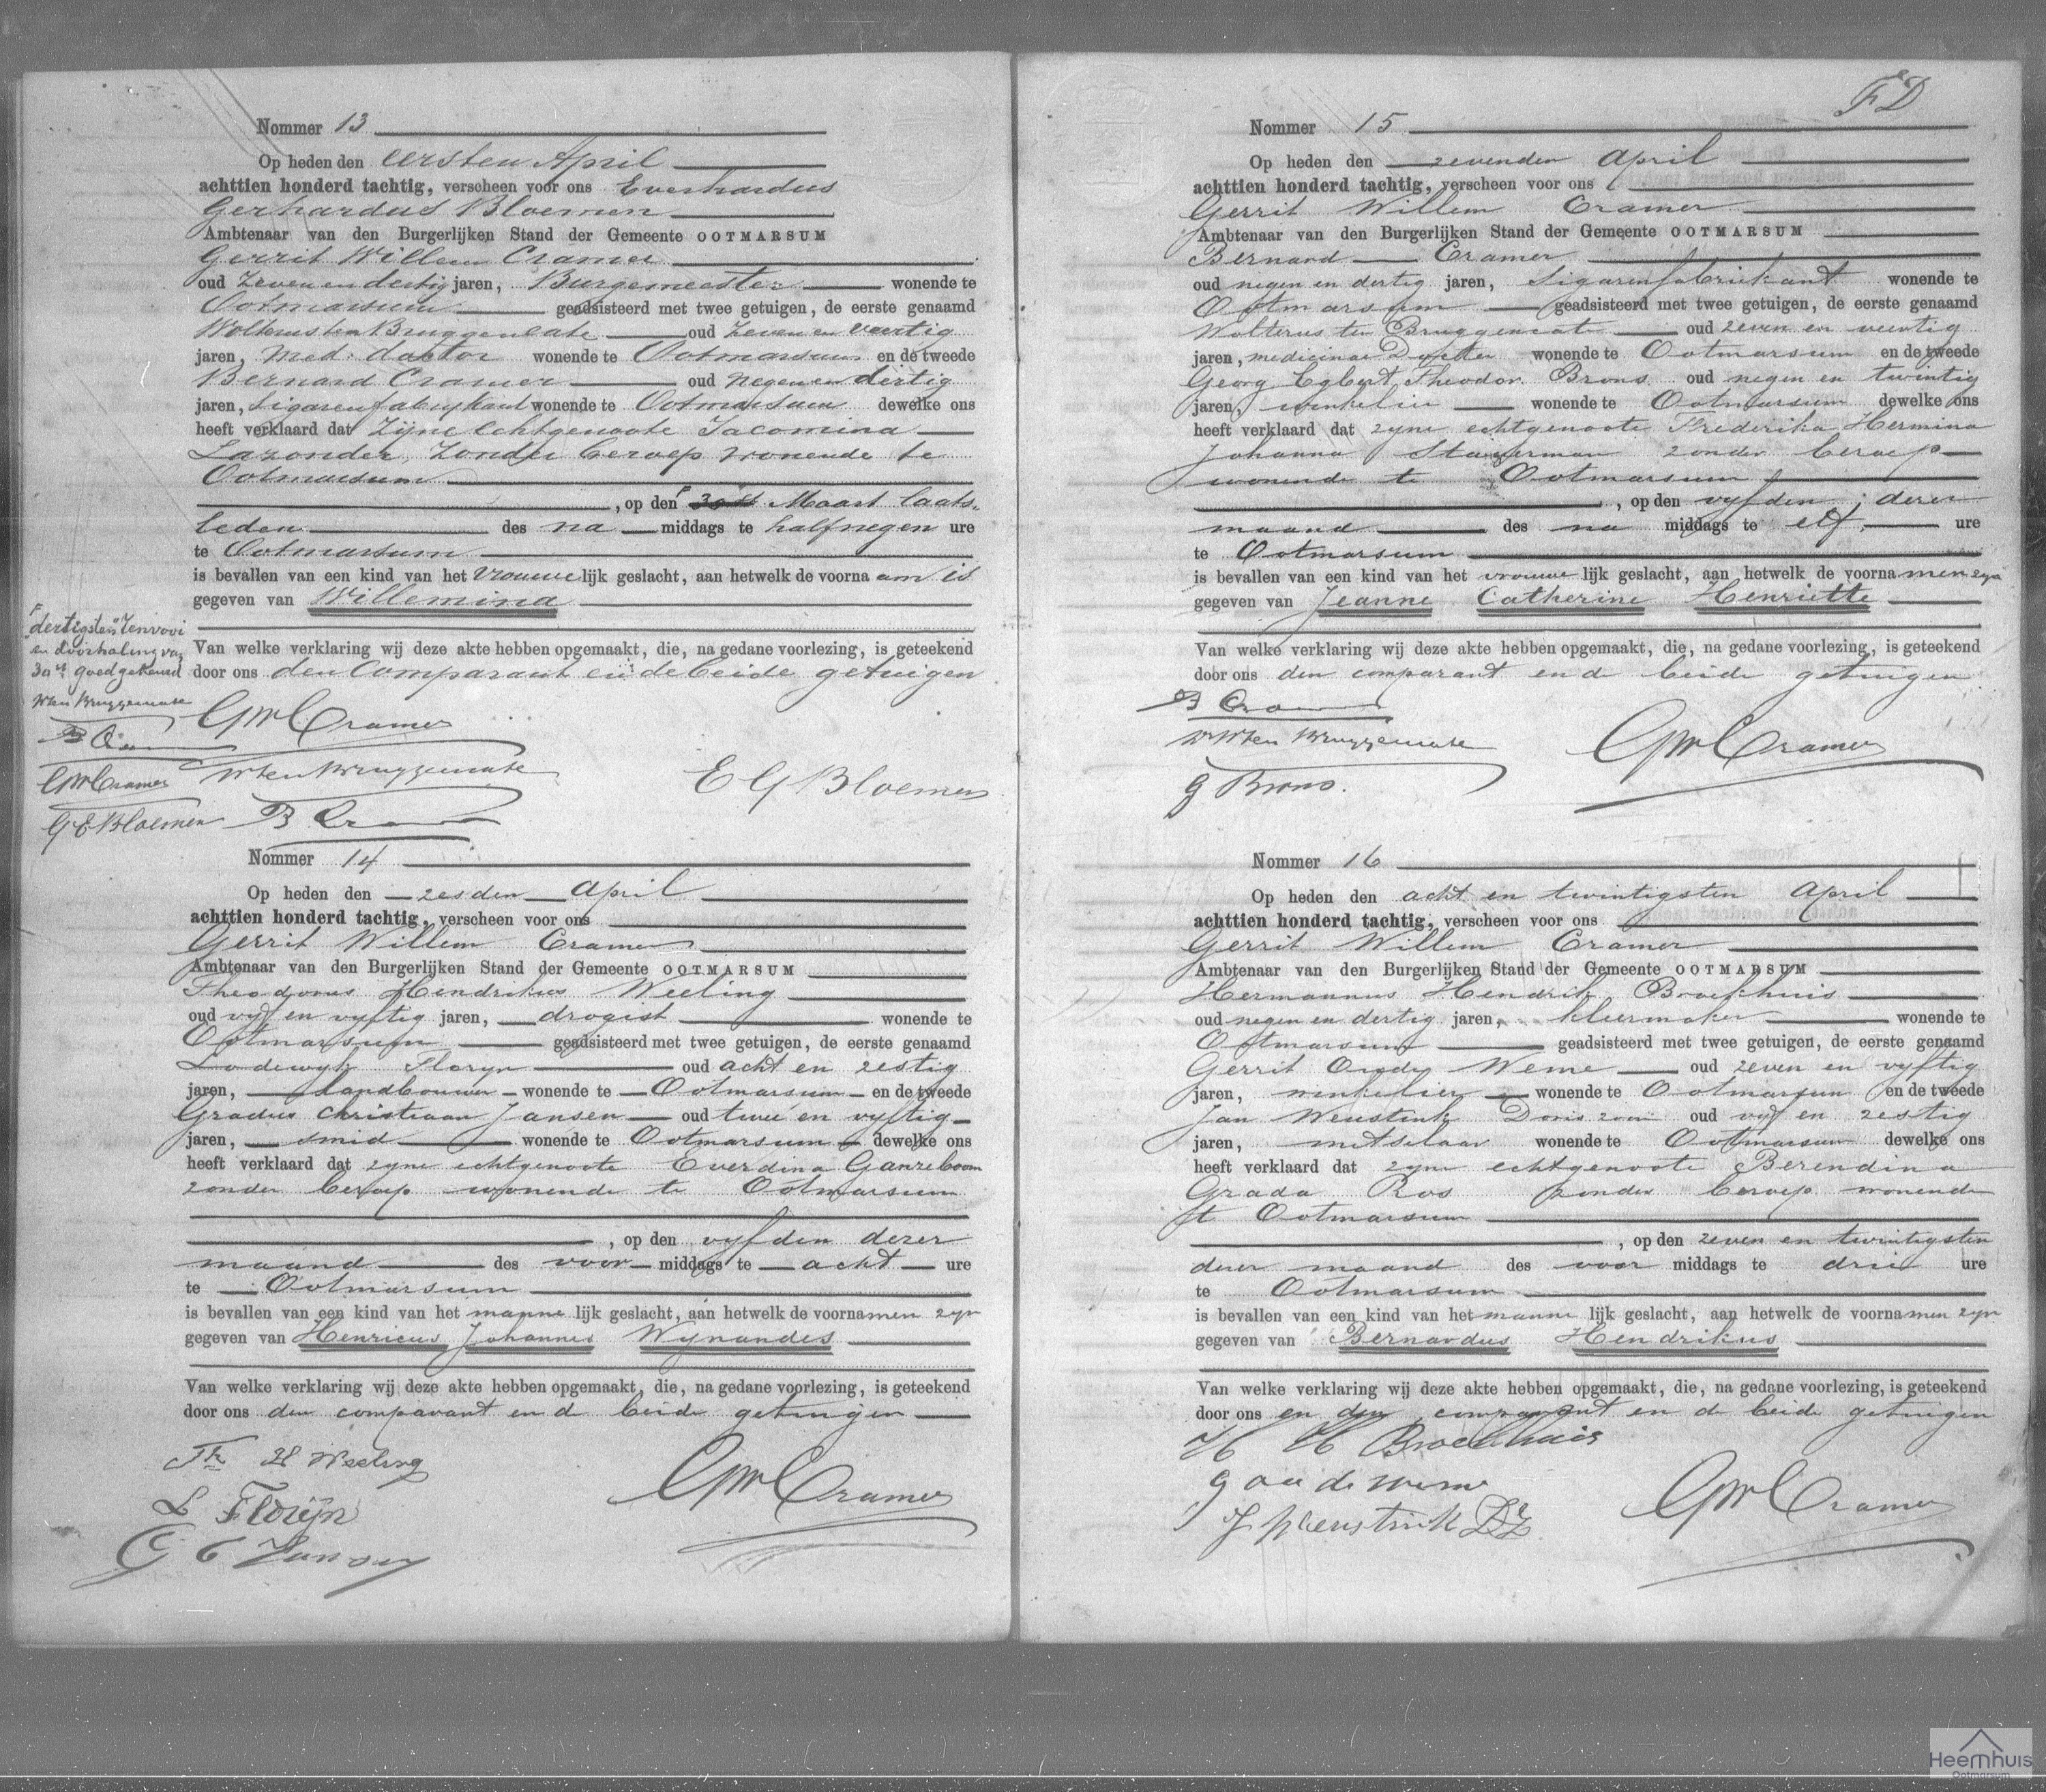 Nommer 13
Op heden den eersten April
achttien honderd tachtig, verscheen voor ons Everhardus
Gerhardus Bloemen
Ambtenaar van den Burgerlijken Stand der Gemeente OOTMARSUM
Gerrit Willem Cramer
oud zeven en dertig jaren, Burgemeester wonende te
Ootmarsum geadsisteerd met twee getuigen, de eerste genaamd
Wolterus ten Bruggencate oud zeven en veertig
jaren, med: doctor wonende te Ootmarsum en de tweede
Bernard Cramer oud negen en dertig
jaren, sigarenfabrykant wonende te Ootmarsum dewelke ons
heeft verklaard dat zijne echtgenoote Jacomina
Lazonder, zonder beroep wonende te
Ootmarsum
, op den 30st Maart laats-
leden des na middags te half negen ure
te Ootmarsum
is bevallen van een kind van het vrouwelijk geslacht, aan hetwelk de voornaam is
gegeven van Willemina
"dertigsten" renvooi
en doorhaling van
30st goedgekeurd
W ten Bruggencate
B Cramer
GW Cramer
G E Bloemen
Van welke verklaring wij deze akte hebben opgemaakt, die, na gedane voorlezing, is geteekend
door ons den comparant en de beide getuigen
GW Cramer
W ten Bruggencate
E G Bloemen
B Cramer
Nommer 14
Op heden den zesden April
achttien honderd tachtig, verscheen voor ons
Gerrit Willem Cramer
Ambtenaar van den Burgerlijken Stand der Gemeente OOTMARSUM
Theodorus Hendrikus Weeling
oud vyf en vyftig jaren, drogist wonende te
Ootmarsum geadsisteerd met twee getuigen, de eerste genaamd
Lodewyk Floryn oud acht en zestig
jaren, landbouwer wonende te Ootmarsum en de tweede
Gradus Christiaan Jansen oud twee en vyftig
jaren, smid wonende te Ootmarsum dewelke ons
heeft verklaard dat zyne echtgenoote Everdina Ganzeboom
zonder beroep wonende te Ootmarsum
, op den vyfden dezer
maand des voor middags te acht ure
te Ootmarsum
is bevallen van een kind van het mannelijk geslacht, aan hetwelk de voornamen zyn
gegeven van Henricus Johannes Wynandes
Van welke verklaring wij deze akte hebben opgemaakt, die, na gedane voorlezing, is geteekend
door ons den comparant en d beide getuigen
Th H Weeling
L Florijn
G C Jansen
GW Cramer
FD
Nommer 15
Op heden den zevenden April
achttien honderd tachtig, verscheen voor ons
Gerrit Willem Cramer
Ambtenaar van den Burgerlijken Stand der Gemeente OOTMARSUM
Bernard Cramer
oud negen en dertig jaren, Sigarenfabriekant wonende te
Ootmarsum geadsisteerd met twee getuigen, de eerste genaamd
Wolterus ten Bruggencate oud zeven en veertig
jaren, medicinae Doctor wonende te Ootmarsum en de tweede
Georg Egbert Theodor Brons oud negen en twintig
jaren, winkelier wonende te Ootmarsum dewelke ons
heeft verklaard dat zyne echtgenoote Frederika Hermina
Johanna Stagerman zonder beroep
wonende te Ootmarsum
, op den vyfden dezer
maand des na middags te elf ure
te Ootmarsum
is bevallen van een kind van het vrouwelijk geslacht, aan hetwelk de voornamen zyn
gegeven van Jeanne Catherine Henriette
Van welke verklaring wij deze akte hebben opgemaakt, die, na gedane voorlezing, is geteekend
door ons den comparant en d beide getuigen
B Cramer
W ten Bruggencate
G Brons.
GW Cramer
Nommer 16
Op heden den acht en twintigsten April
achttien honderd tachtig, verscheen voor ons
Gerrit Willem Cramer
Ambtenaar van den Burgerlijken Stand der Gemeente OOTMARSUM
Hermannus Hendrik Broekhuis
oud negen en dertig jaren, kleermaker wonende te
Ootmarsum geadsisteerd met twee getuigen, de eerste genaamd
Gerrit Oude Weme oud zeven en vyftig
jaren, winkelier wonende te Ootmarsum en de tweede
Jan Weustink Doris zoon oud vyf en zestig
jaren, metselaar wonende te Ootmarsum dewelke ons
heeft verklaard dat zyne echtgenoote Berendina
Grada Ros zonder beroep wonende
te Ootmarsum
, op den zeven en twintigsten
dezer maand des voor middags te drie ure
te Ootmarsum
is bevallen van een kind van het mannelijk geslacht, aan hetwelk de voornamen zyn
gegeven van Bernardus Hendrikus
Van welke verklaring wij deze akte hebben opgemaakt, die, na gedane voorlezing, is geteekend
door ons en den comparant en d beide getuigen
H H Broekhuis
G oude weme
J Weustink DZ
GW Cramer
Heemhuis
Ootmarsum